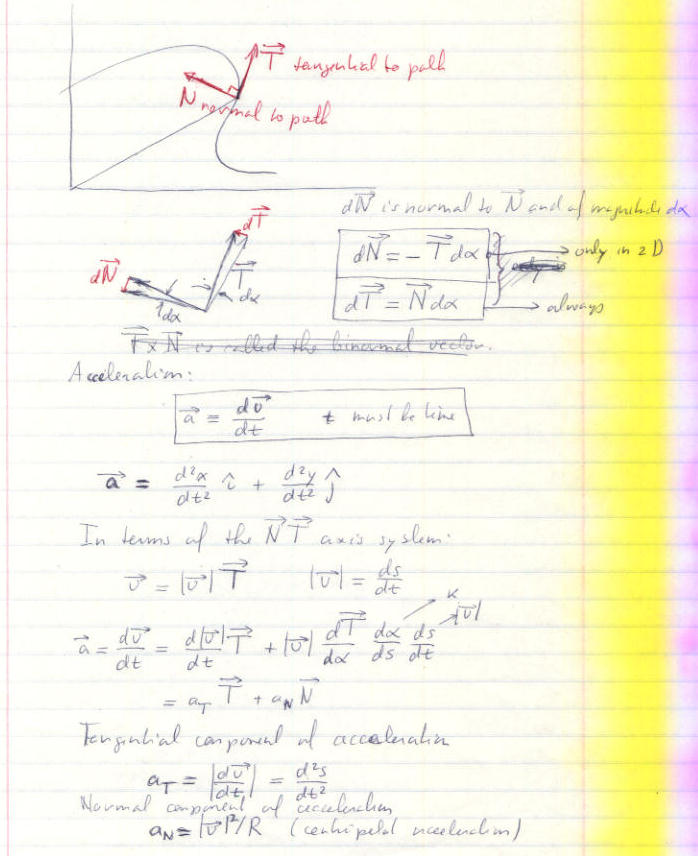 T⃗ tangential to path
N normal to path
dN⃗ is normal to N⃗ and of magnitude dα
dT⃗
dN⃗ = - T⃗ dα only in 2D
dN⃗ T⃗
dα dα
dT⃗ = N⃗ dα always
T⃗ x N⃗ is called the binormal vector.
Acceleration:
a⃗ = dv⃗/dt t must be time
a⃗ = d²x/dt² î + d²y/dt² ĵ
In terms of the N⃗ T⃗ axis system:
v⃗ = |v⃗| T⃗ |v⃗| = ds/dt
κ |v⃗|
a⃗ = dv⃗/dt = d|v⃗|/dt T⃗ + |v⃗| dT⃗/dα dα/ds ds/dt
= a_T T⃗ + a_N N⃗
Tangential component of acceleration
a_T = |dv⃗/dt| = d²s/dt²
Normal component of acceleration
a_N = |v⃗|²/R (centripetal acceleration)